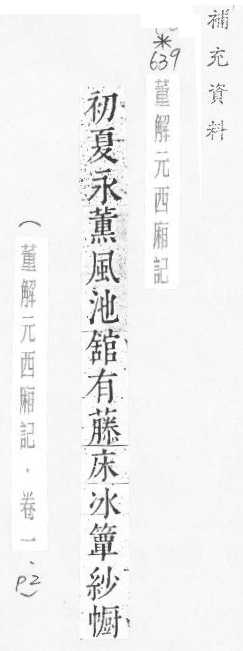 補充資料
*639
董解元西廂記
初夏永薰風池舘有藤床冰簟紗㡡
(董解元西廂記.卷一、P2)